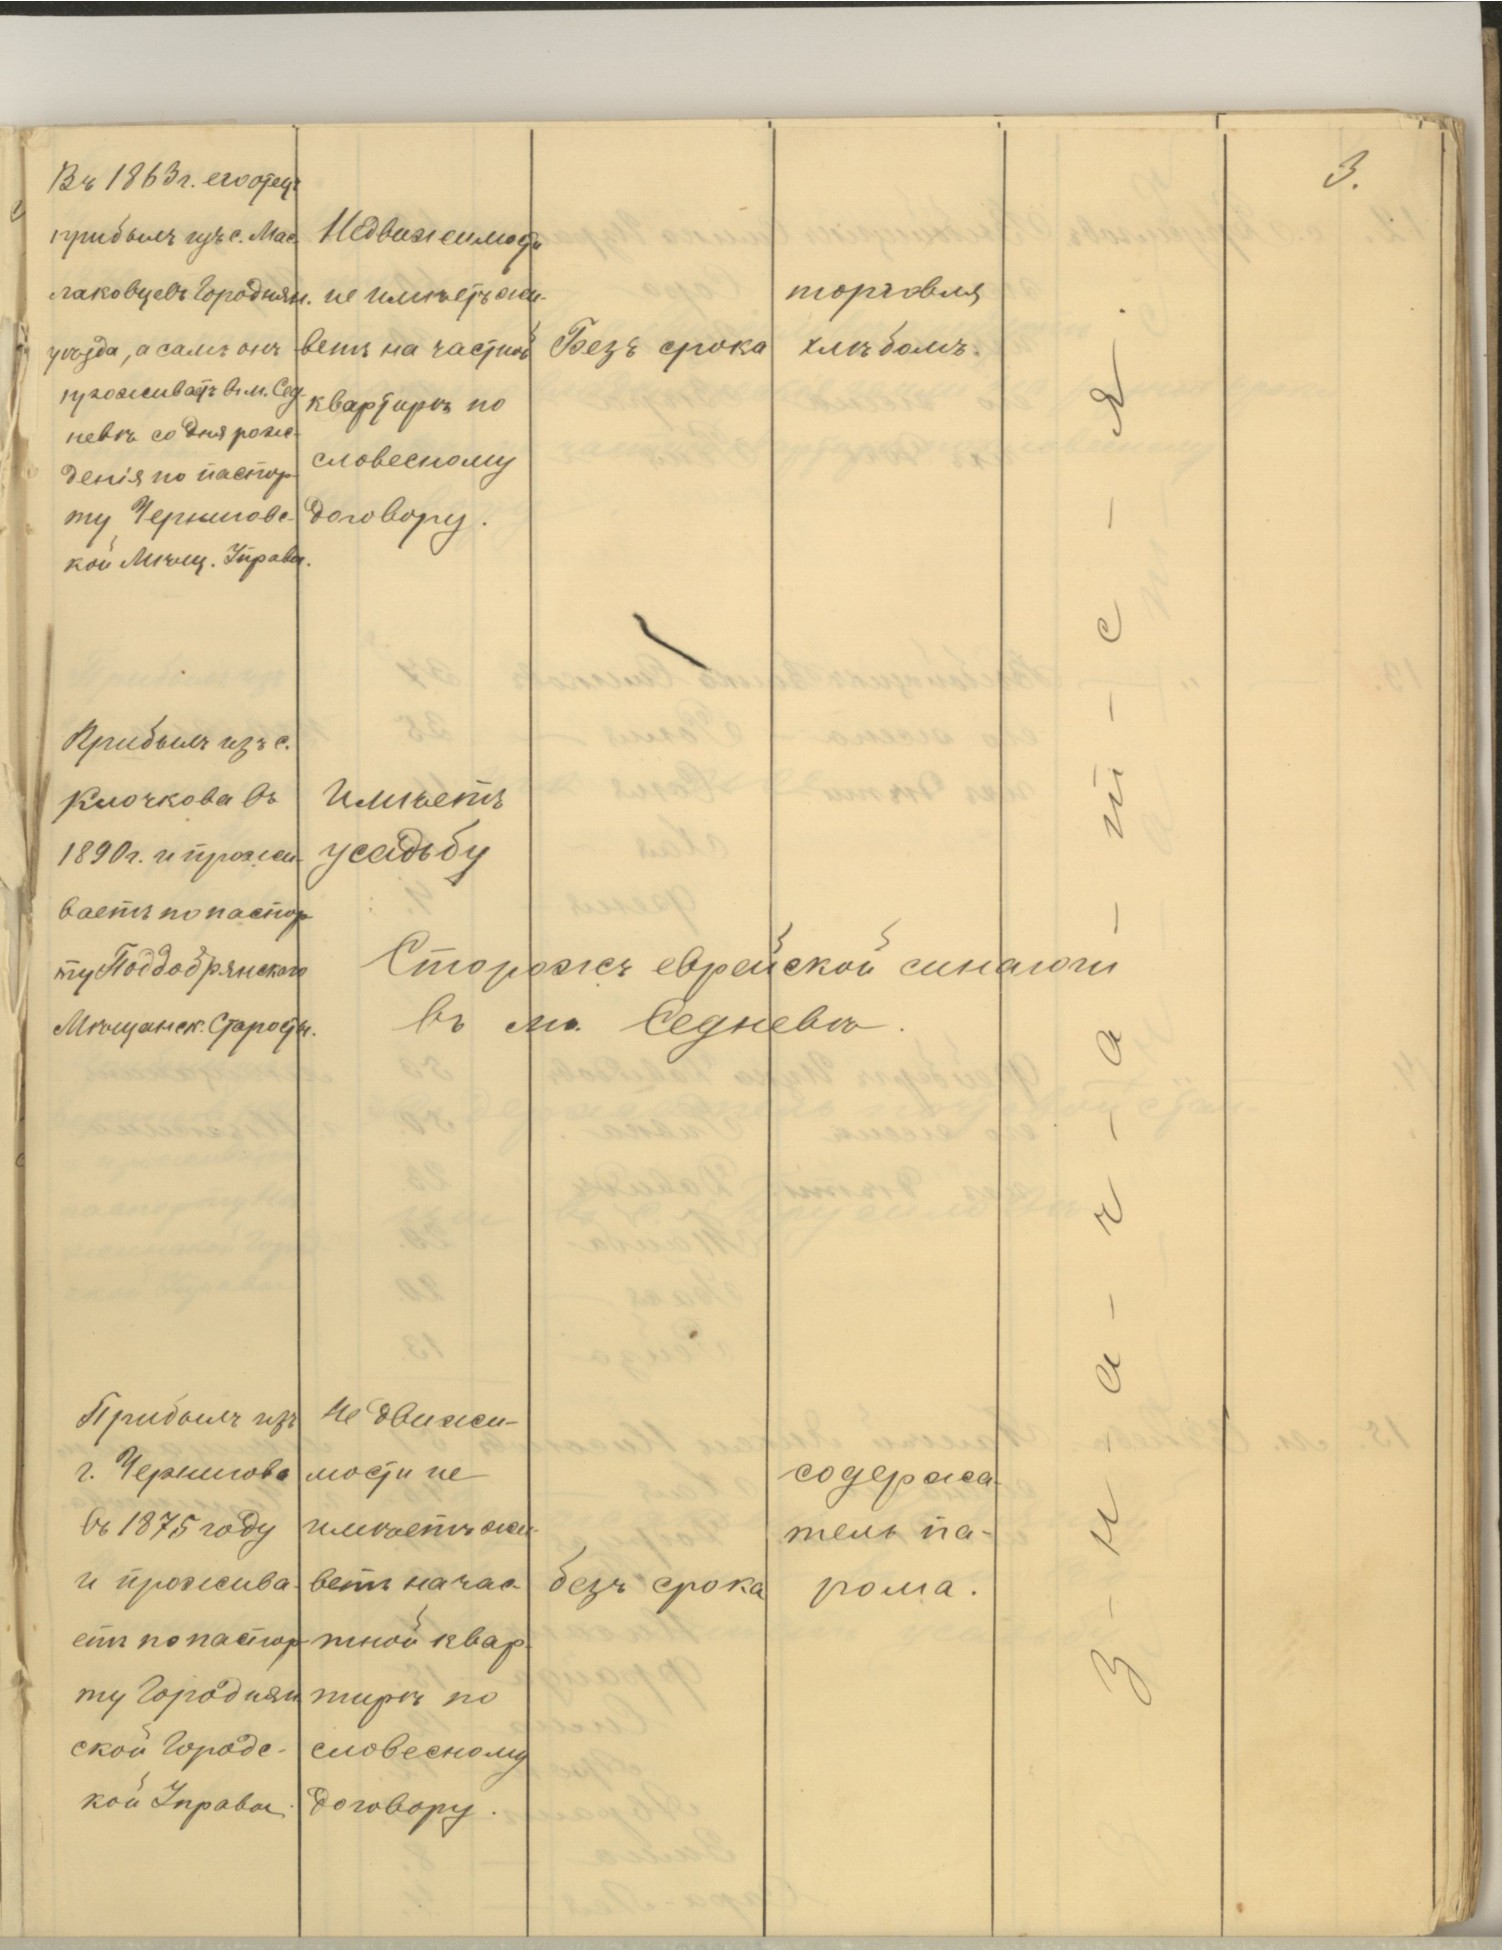 3.
Въ 1863 г. его отецъ
прибылъ изъ с. Мас-
лаковцевъ Городнян.
уѣзда, а самъ онъ
проживаетъ в м. Сед-
невѣ со дня рож-
денія по паспор-
ту Черниговс-
кой Мѣщ. Управы.
Недвижимости
не имѣетъ жи-
ветъ на частной
квартирѣ по
словесному
договору.
Безъ срока
торговля
хлѣбомъ.
Прибылъ изъ с.
Клочкова въ
1890 г. и прожи-
ваетъ по паспор-
ту Поддобрянского
Мѣщанск. Старосты.
Имѣетъ
усадьбу
Сторожъ еврейской синагоги
въ м. Седневѣ.
Прибылъ изъ
г. Чернигова
въ 1875 году
и прожива-
етъ по паспор-
ту Городнян-
ской Городс-
кой Управы.
Недвижи-
мости не
имѣетъ жи-
ветъ на час-
тной квар-
тирѣ по
словесному
договору.
безъ срока
содержа-
тель па-
рома.
З-н-а-ч-а-т-с-я.